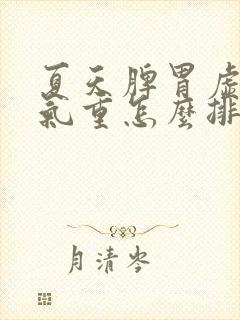 夏天脾胃虛
氣重怎麼排
月清岑